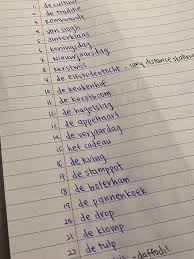 1. de cultuur
2. de traditie
3. Rembrandt
4. van Gogh
5. Sinterklaas
6. Koningsdag
7. Nieuwjaarsdag
8. Kerstmis
9. de Elfstedentocht - long distance skating
10. de Keukenhof
11. de kerstboom
12. de hagelslag
13. de appeltaart
14. de verjaardag
15. het cadeau
16. de kring
17. de stamppot
18. de boterham
19. de pannenkoek
20. de drop
21. de klomp
22. de tulp
- daffodil